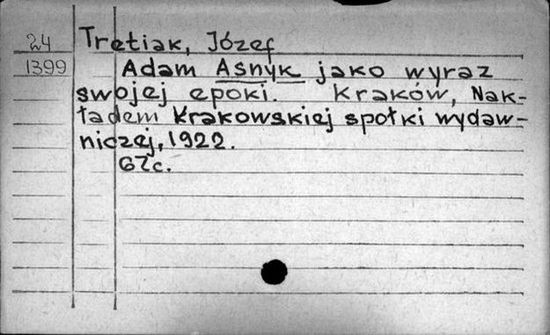 24 Tretiak, Józef
1399 Adam Asnyk jako wyraz
swojej epoki. Kraków, Nak-
ładem Krakowskiej spółki wydaw-
niczej, 1922.
67c.